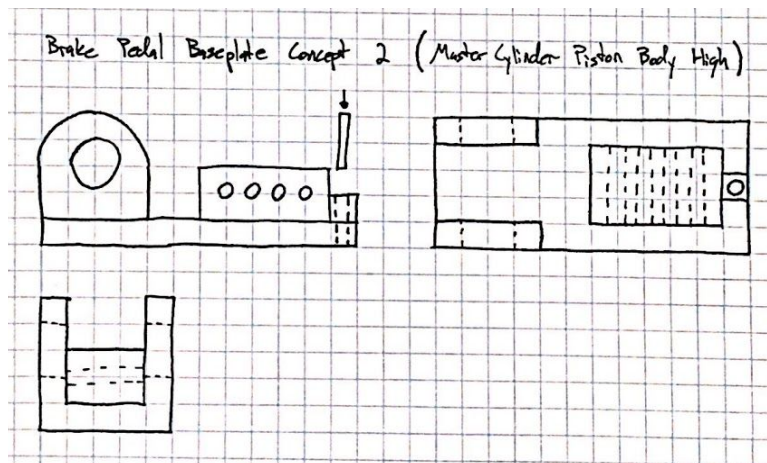 Brake Pedal Baseplate Concept 2 (Master Cylinder Piston Body High)